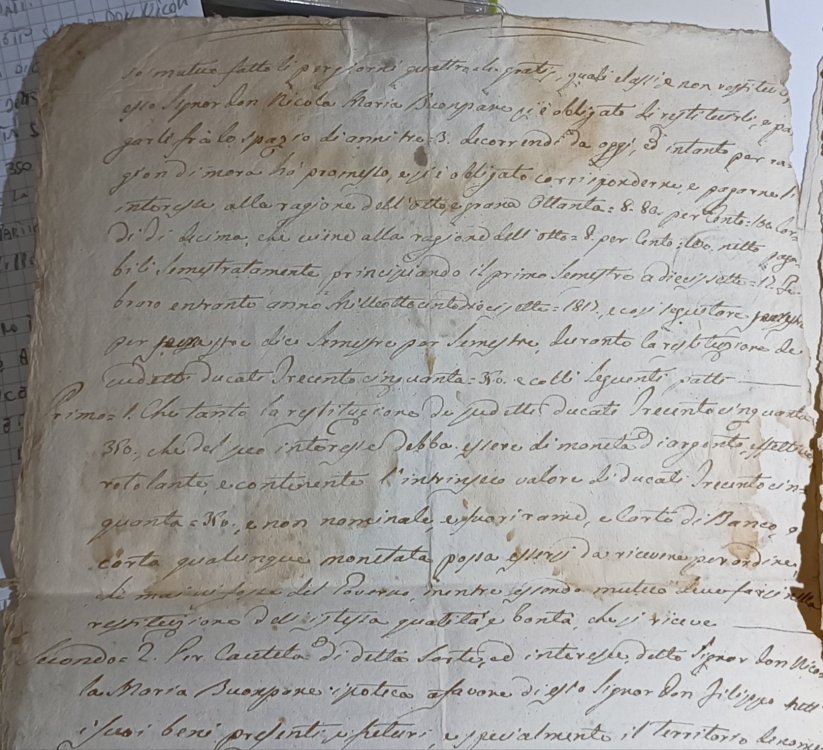 so mutuo fatto li per giorni quattro di gratis, quali elassi e non restituiti
esso Signor Don Nicola Maria Buonpane si è obligato di restituirli, e pa
garli frà lo spazio di anni tre = 3. decorrendi da oggi, ed intanto per ra
gion di mora hà promesso, e si è obligato corrisponderne, e pagarne l'
interesse alla ragione dell'otto, e grana Ottanta = 8:80. per Cento = 100 lor
di di decima, che viene alla ragione dell'otto = 8. per Cento = 100. netto paga
bili Semestratamente, principiando il primo Semestre a diecessette = 17. Fe
braro entrante anno Milleottocentodiecessette = 1817. e così seguitare
per dico Semestre per Semestre, durante la restituzione de
sudetti Ducati Trecentocinquanta = 350. e colli seguenti patti
Primo = 1. Che tanto la restituzione de sudetti ducati Trecentocinquanta
350. che del suo interesse debba essere di moneta d'argento effettivo
rotolante, e continente l'intrinseco valore di ducati Trecentocin
quanta = 350., e non nominale e fuori rame, e Carte di Banco, o
carta qualunque monetata possa essersi da ricevere per ordine
di mai si fosse del Governo, mentre essendo mutuo deve farsi nella
restituzione dell'istessa qualità e bontà, che si riceve
Secondo = 2. Per Cautela di detta Sorte, ed interesse, detto Signor Don Nico
la Maria Buonpane ipoteca a favore di esso Signor Don Filippo tutti
i suoi beni presenti e futuri, e specialmente il territorio